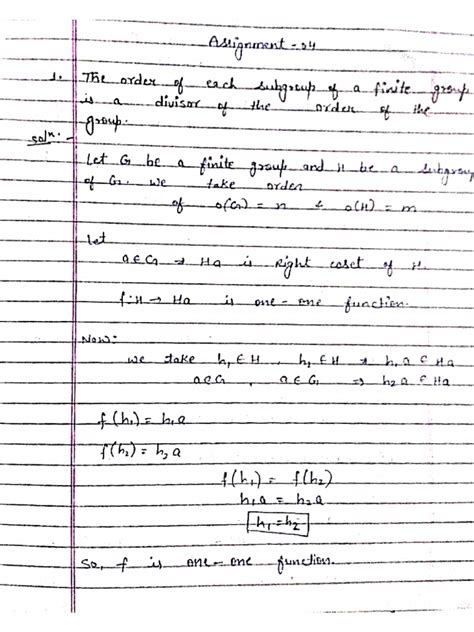 Assignment - 04
1. The order of each subgroup of a finite group
is a divisor of the order of the
group.
Solⁿ. -
Let G be a finite group and H be a subgroup
of G. We take order
of o(G) = n & o(H) = m
Let
a∈G → Ha is Right coset of H.
f:H → Ha is one-one function.
Now:
we take h₁∈H, h₁∈H → h₁a∈Ha
a∈G, a∈G ⇒ h₂a∈Ha
f(h₁) = h₁a
f(h₂) = h₂a
f(h₁) = f(h₂)
h₁a = h₂a
h₁=h₂
So, f is one-one function.